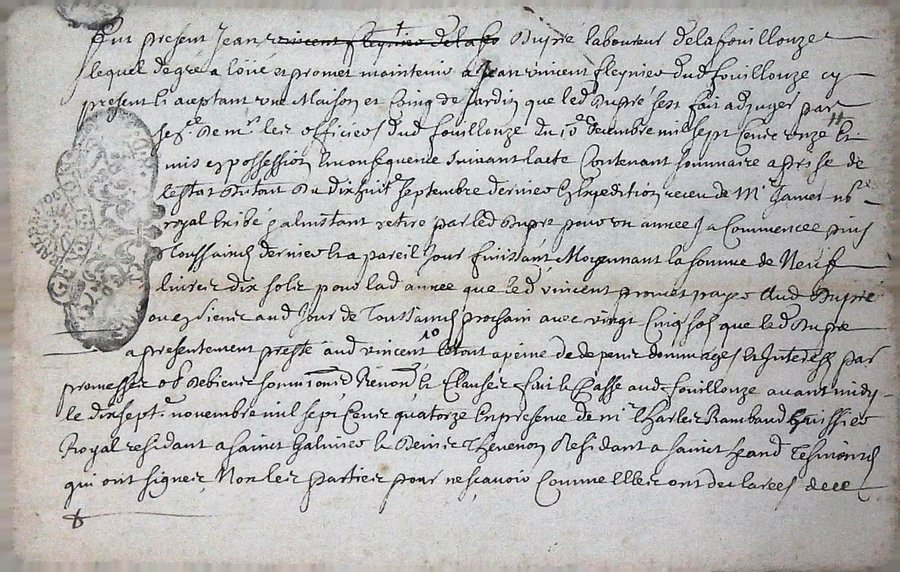 fut présent Jean vincent fleynieu delafo Dupré laboureur delafouillouze
lequel degré a loüé et promet maintenir a Jean vincent fleynieu dud fouillouze cy
present et aceptant une Maison et Coing de Jardin que led Dupré sest fait adjuger par
les officiers dud fouillouze du Decembre mil sept Cens onze Et
mis en possession En consequence suivant lacte Contenant sommaire aprise de
lestat Du tout Du dix huit septembre dernier Expedition receu de Mr Jamet no
royal Exibé et a linstant retiré par led Dupré pour un année Ja Commencée puis
Toussaincts dernier et a pareil Jour finissant Moyennant la somme de Neuf
livres dix sols pour lad année que led vincent promet payer Aud Dupré
ou es siens aud Jour de Toussaincts prochain avec vingt Cinq sols que led Dupré
a presentement presté aud vincent le tout a peine de depens dommages et Interests par
promesses ob de biens soumi renon et Clauses fait et Passé aud fouillouze avant midy
le dix sept novembre mil sept Cens quatorze En presence de mr Charles Rambaud huissier
Royal residant a saint Galmier et Denis Thevenon Residant a saint heand Tesmoins
qui ont signer Non les parties pour ne scavoir Comme Elles ont declarees de ce